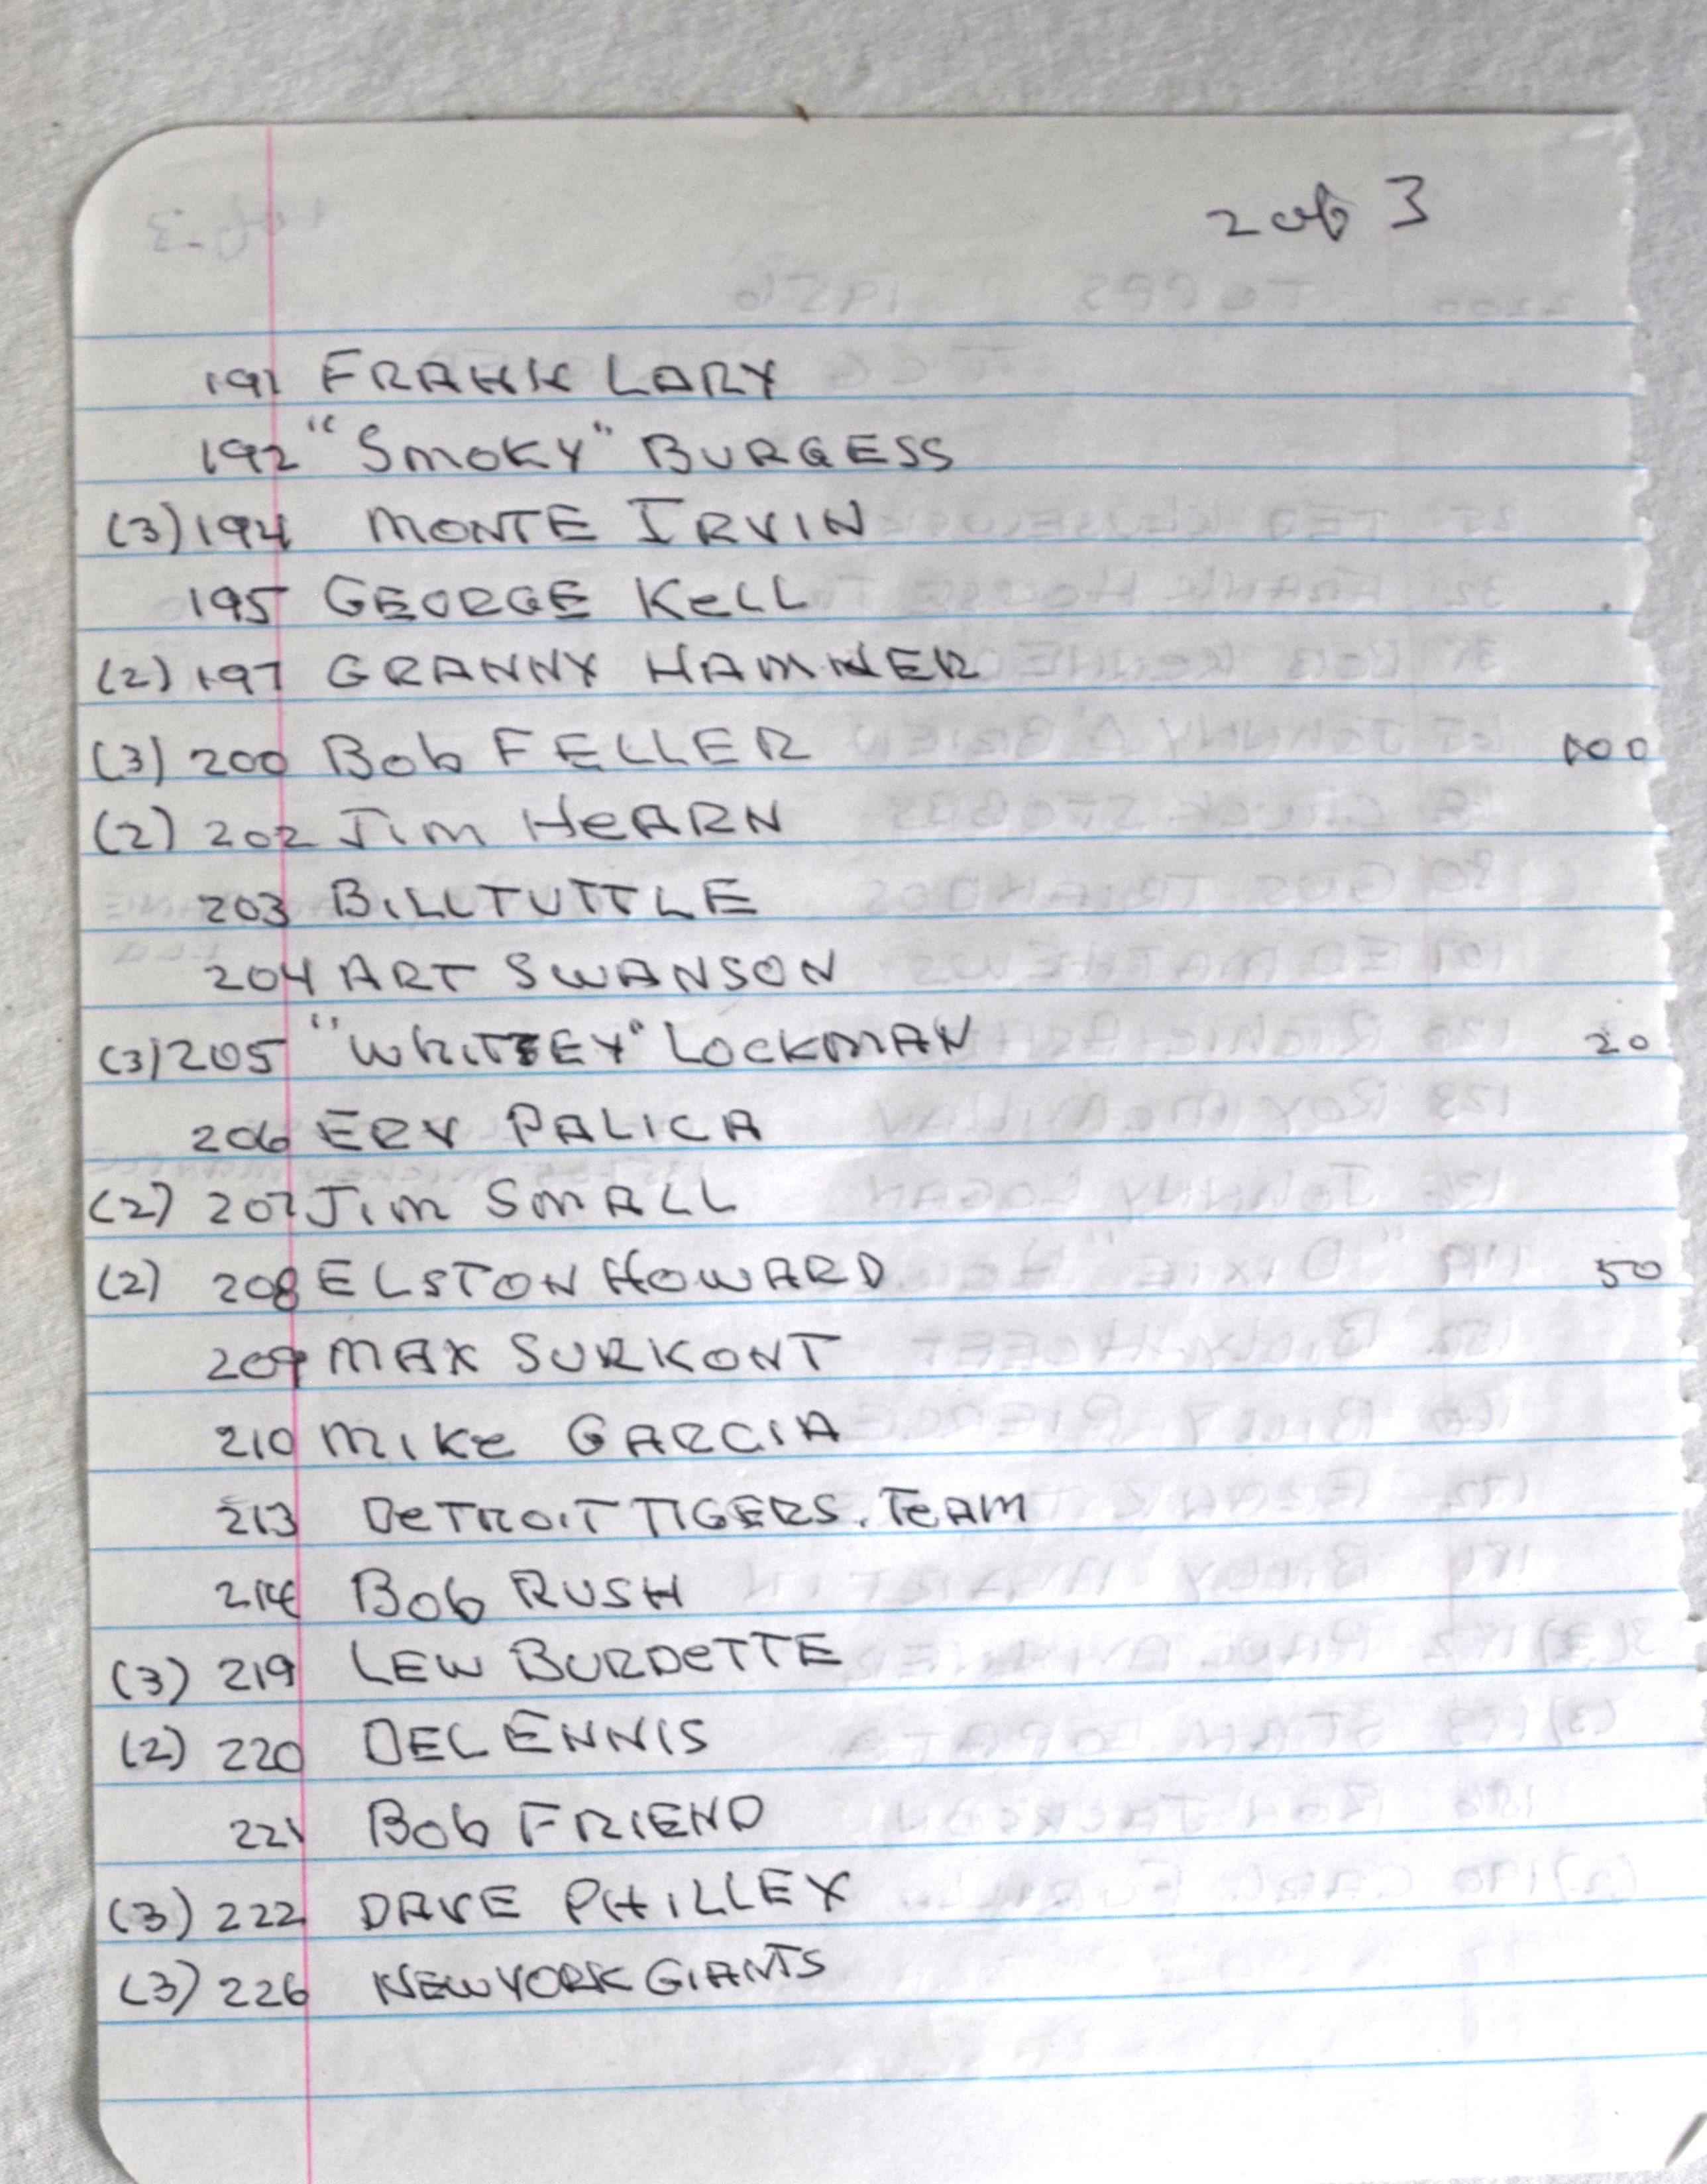 2 of 3
191 FRANK LARY
192 "SMOKY" BURGESS
(3) 194 MONTE IRVIN
195 GEORGE KELL
(2) 197 GRANNY HAMNER
(3) 200 Bob FELLER 100
(2) 202 Jim HEARN
203 BILL TUTTLE
204 ART SWANSON
(3) 205 "WHITEY" LOCKMAN 20
206 ERV PALICA
(2) 207 Jim SMALL
(2) 208 ELSTON HOWARD 50
209 MAX SURKONT
210 MIKE GARCIA
213 DETROIT TIGERS. TEAM
214 Bob RUSH
(3) 219 LEW BURDETTE
(2) 220 DEL ENNIS
221 Bob FRIEND
(3) 222 DAVE PHILLEY
(3) 226 NEW YORK GIANTS